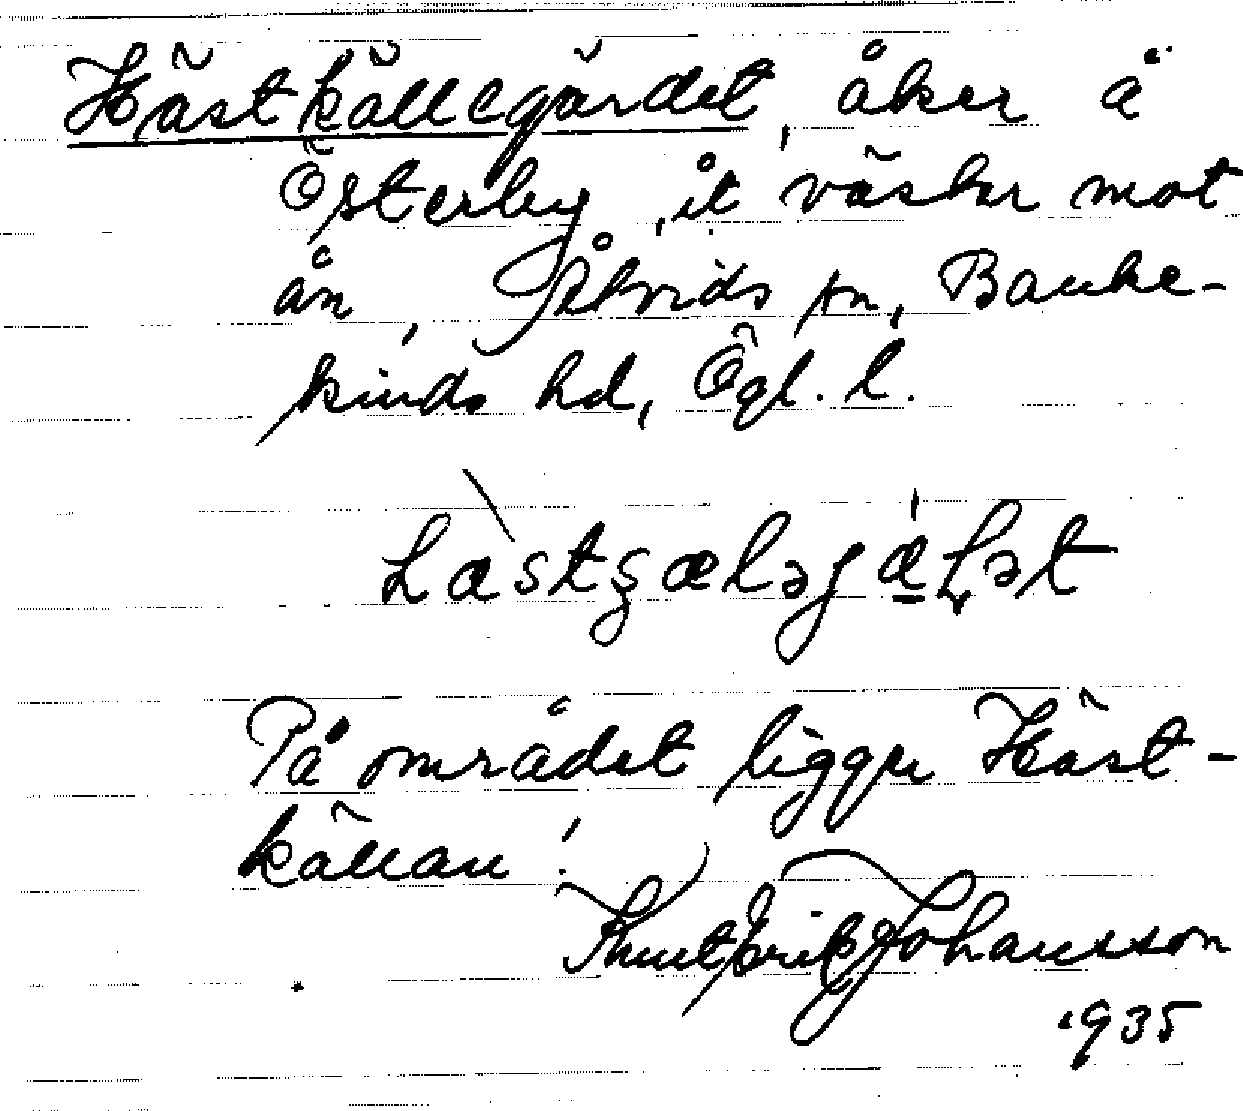 Hästkällegärdet, åker å
Österby, åt väster mot
ån, Åtvids sn, Banke-
kinds hd, Ögl. l.
På området ligger Häst-
källan!
Knut Erik Johansson
1935